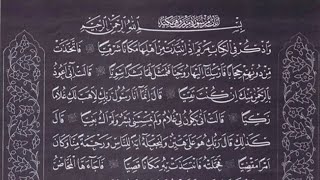 بِسْمِ اللهِ الرَّحْمٰنِ الرَّحِيمِ
وَاذْكُرْ فِي الْكِتَابِ مَرْيَمَ إِذِ انْتَبَذَتْ مِنْ أَهْلِهَا مَكَانًا شَرْقِيًّا فَاتَّخَذَتْ
مِنْ دُونِهِمْ حِجَابًا فَأَرْسَلْنَا إِلَيْهَا رُوحَنَا فَتَمَثَّلَ لَهَا بَشَرًا سَوِيًّا قَالَتْ إِنِّي أَعُوذُ
بِالرَّحْمٰنِ مِنْكَ إِنْ كُنْتَ تَقِيًّا قَالَ إِنَّمَا أَنَا رَسُولُ رَبِّكِ لِأَهَبَ لَكِ غُلَامًا
زَكِيًّا قَالَتْ أَنَّى يَكُونُ لِي غُلَامٌ وَلَمْ يَمْسَسْنِي بَشَرٌ وَلَمْ أَكُ بَغِيًّا قَالَ
كَذٰلِكِ قَالَ رَبُّكِ هُوَ عَلَيَّ هَيِّنٌ وَلِنَجْعَلَهُ آيَةً لِلنَّاسِ وَرَحْمَةً مِنَّا وَكَانَ
أَمْرًا مَقْضِيًّا فَحَمَلَتْهُ فَانْتَبَذَتْ بِهِ مَكَانًا قَصِيًّا فَأَجَاءَهَا الْمَخَاضُ